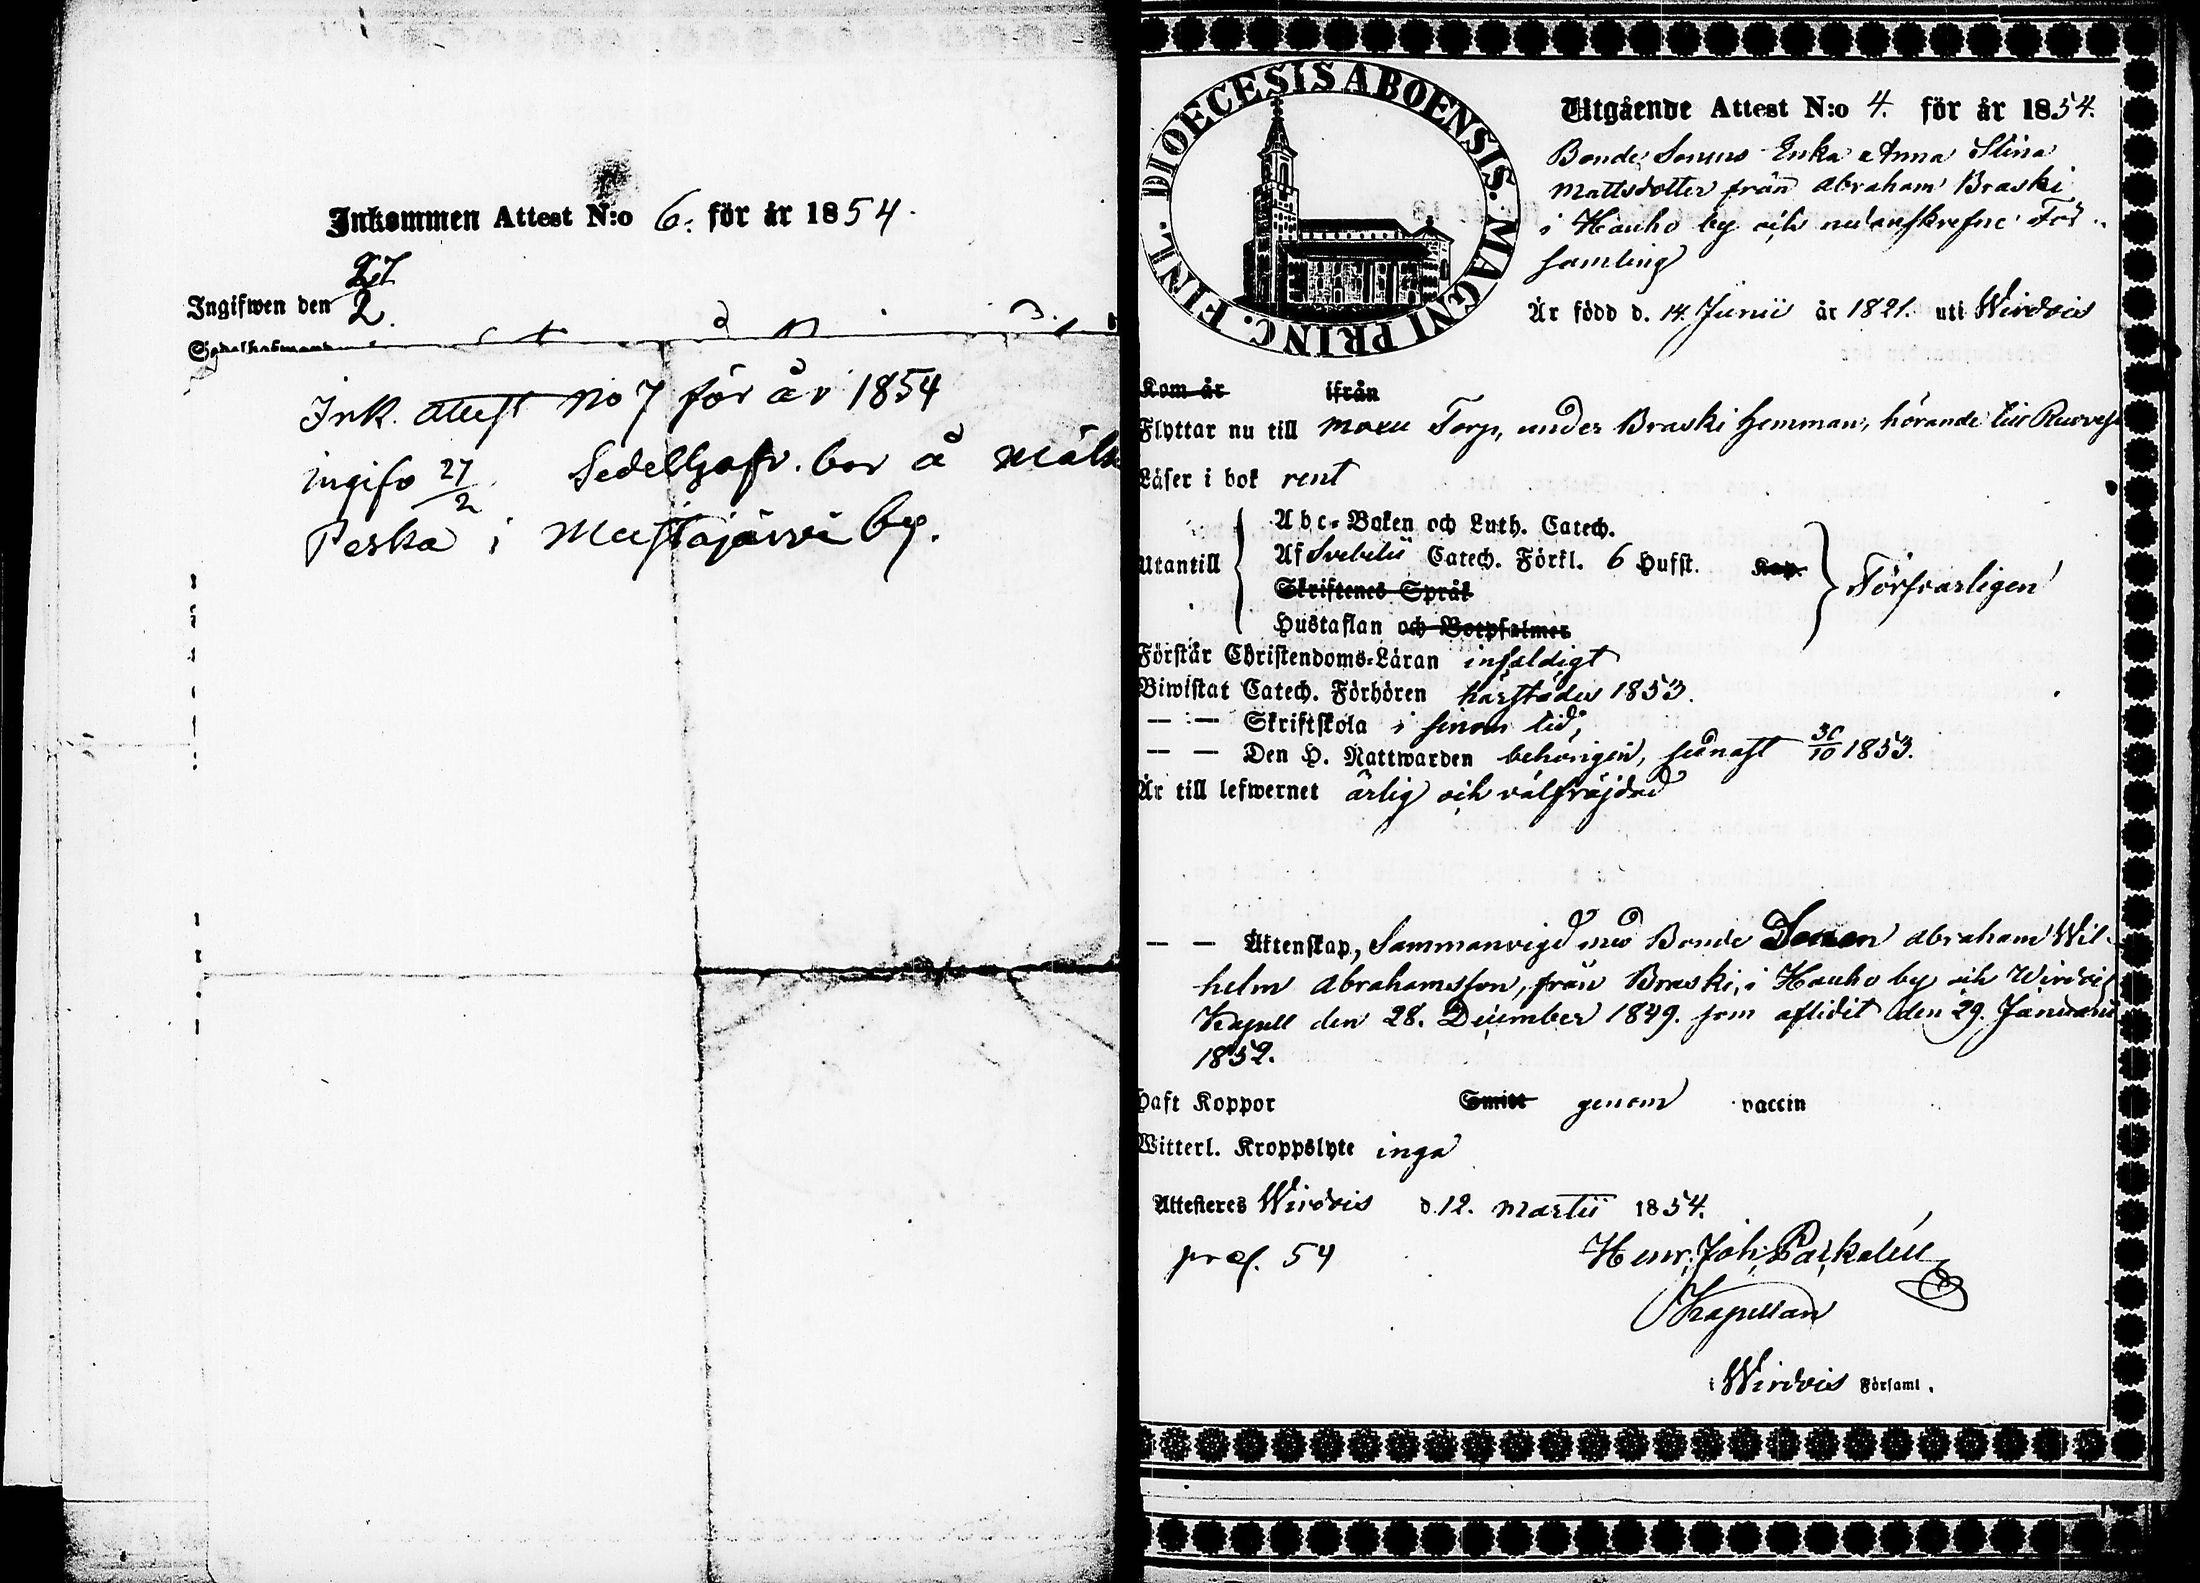 Inkommen Attest N:o 6. för år 1854.
Ingifwen den 27/2.
Ink. attest No 7 för år 1854
ingifv 27/2. Sedelhafv. bor å
Peska i Mustajärvi by.
DIOECESIS ABOENSIS. MAGNI PRINC. FINL.
Utgående Attest N:o 4. för år 1854.
Bonde Sonens Enka Anna Stina
Mattsdotter från Abraham Braski
i Hauho by och nedanskrefne För-
samling
Är född d. 14. Junii år 1821. uti Wirdois
Kom år ifrån
Flyttar nu till Torp, under Braski hemman, hörande till
Läser i bok rent
Abc-Boken och Luth. Catech.
Utantill Af Svebelii Catech. Förkl. 6 Hufst. Kap. Försvarligen
Skriftenes Språk
Hustaflan och Botpsalmer
Förstår Christendoms-Läran enfaldigt
Biwistat Catech. Förhören härstädes 1853.
— — Skriftskola i sinom tid,
— — Den H. Nattwarden behörigen, senast 30/10 1853.
Är till lefwernet ärlig och välfräjdad
— — Äktenskap, Sammanvigd med Bonde Sonen Abraham Wil-
helm Abrahamsson, från Braski, i Hauho by och Wirdois
Kapell den 28. December 1849. som aflidit den 29. Januarii
1852.
Haft Koppor Smitt genom vaccin
Witterl. Kroppslyte inga
Attesteres Wirdois d. 12. Martii 1854.
præs. 54 Henr. Joh.
Kapellan
i Wirdois Församl.